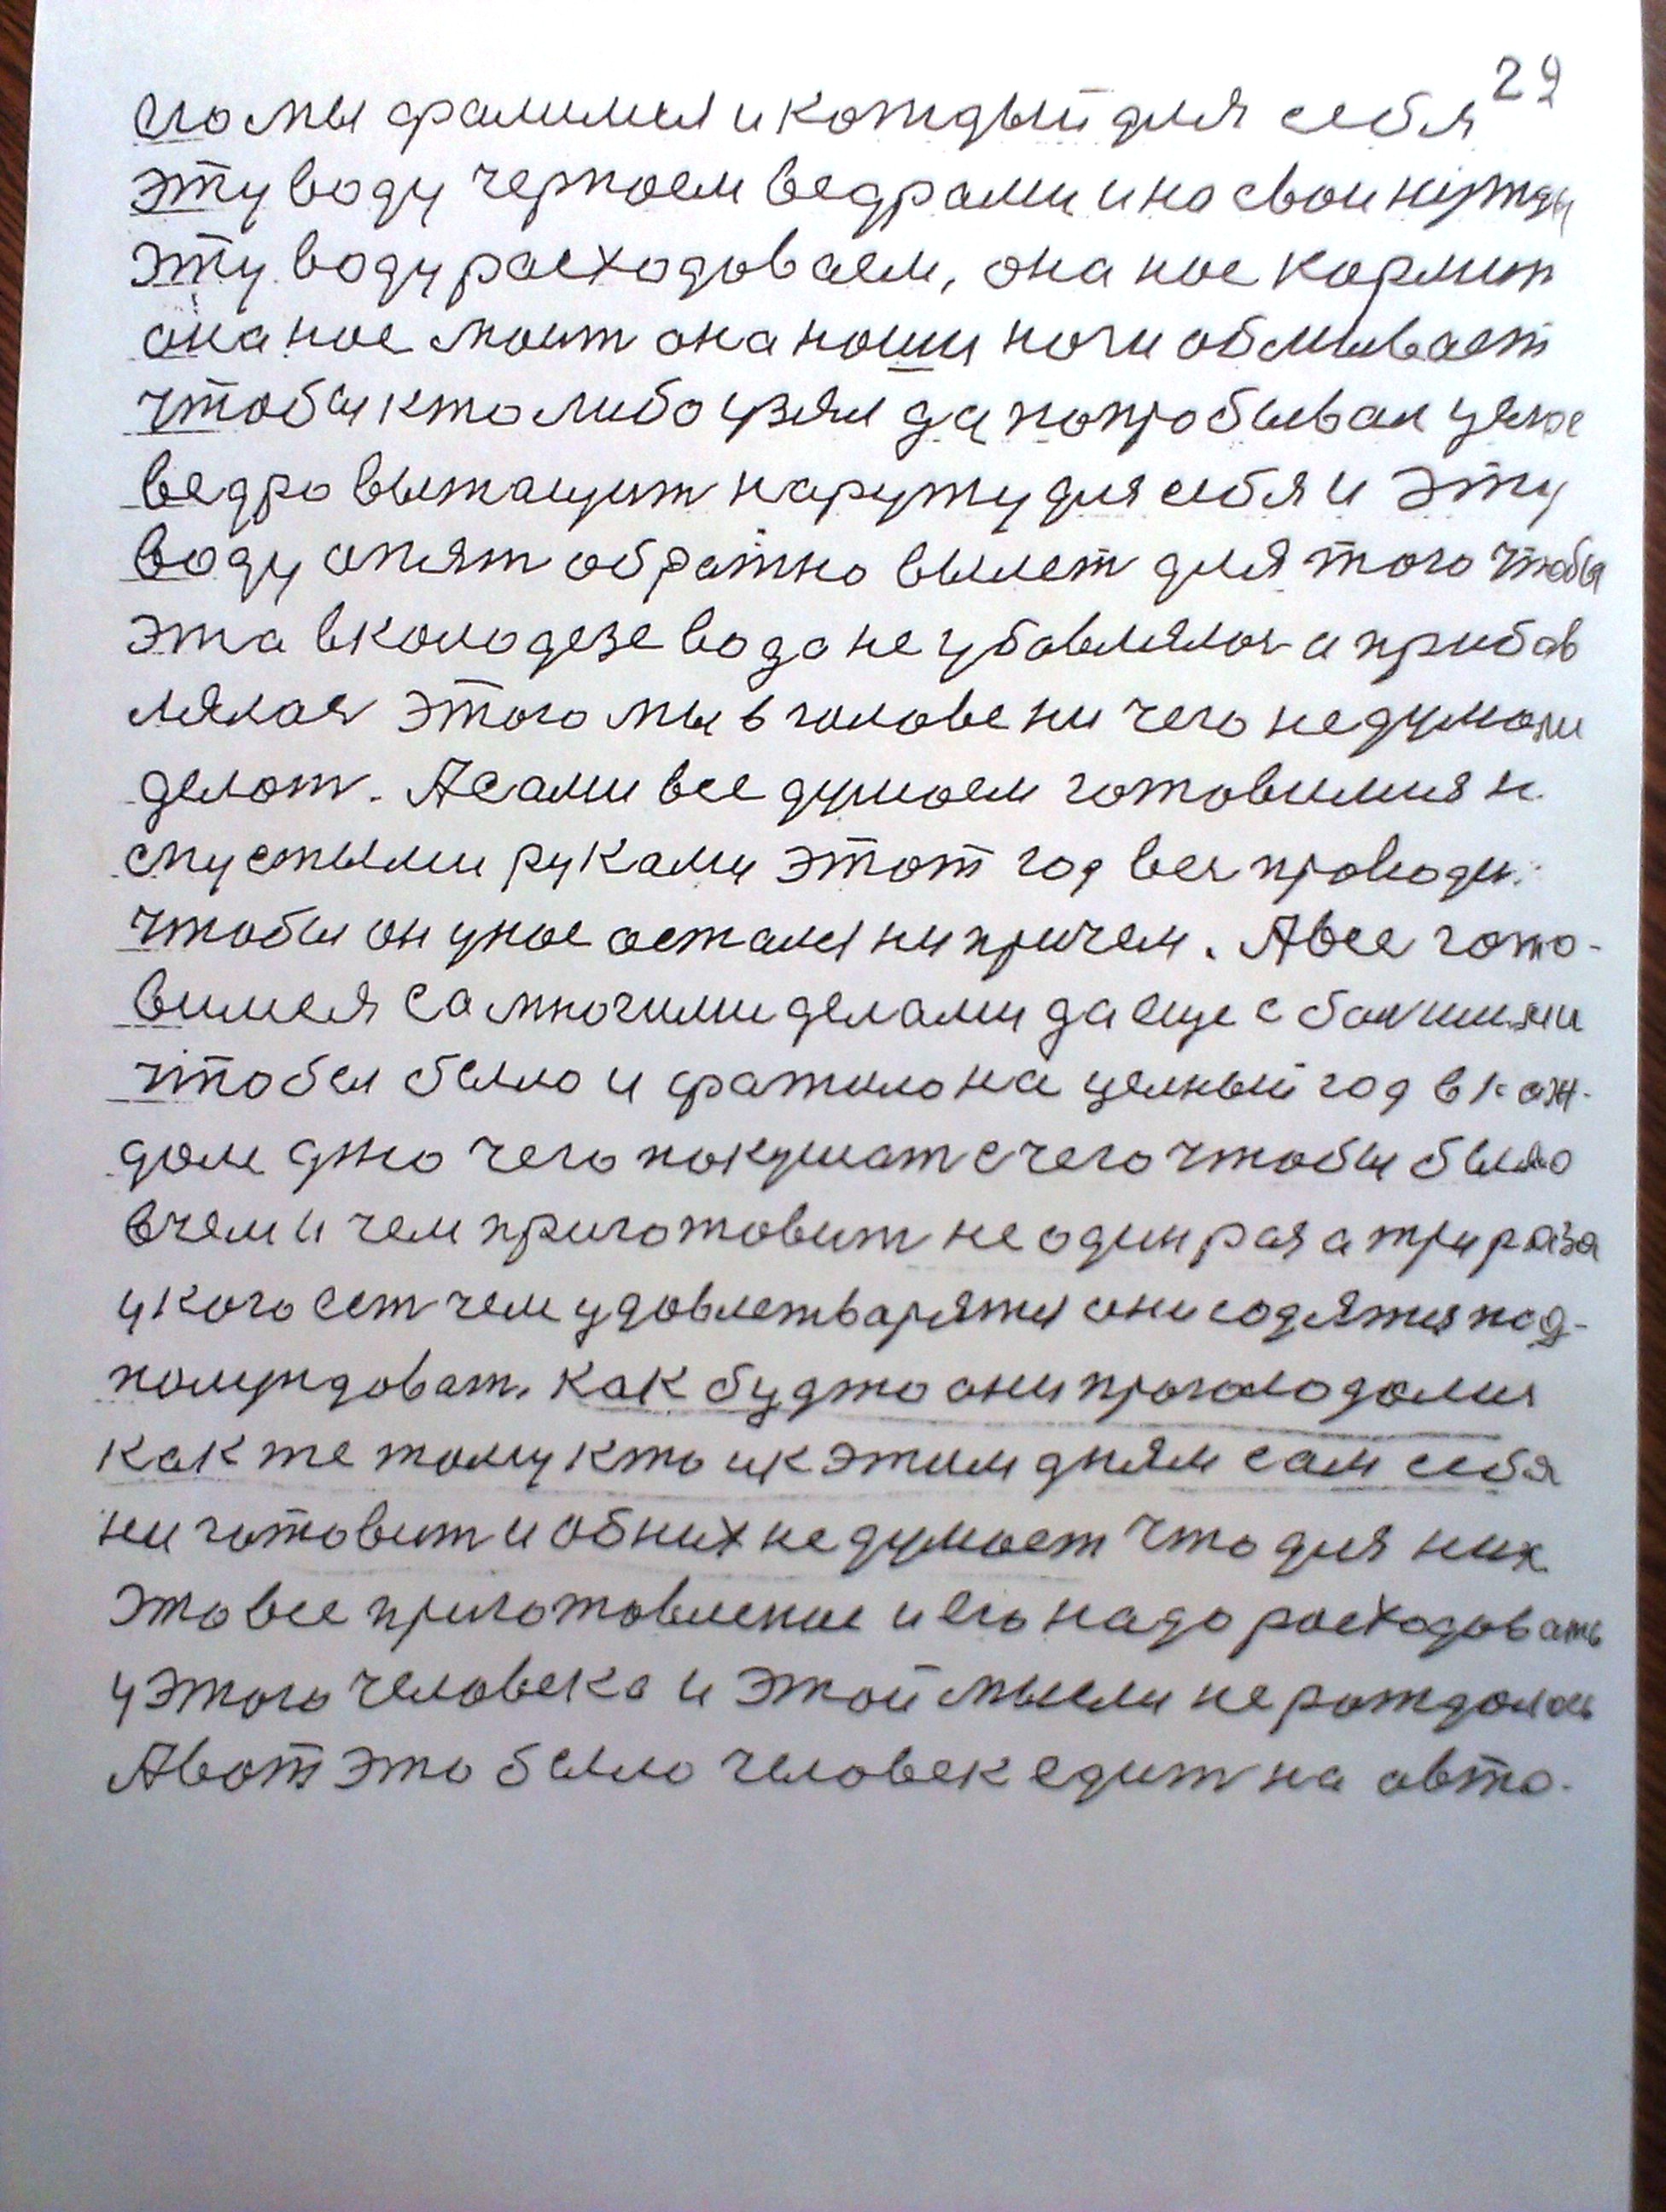 29
его мы фалимся и котдый для себя
эту воду черпоем ведрами и но свои нутды
эту воду расходоваем, она нос кормит
она нос моит она ноши ноги обмывает
чтобы кто либо узял да попробывал целое
ведро вытащит наруту для себя и эту
воду опят обратно вылет для того чтобы
эта в колодезе вода не убавлялоя а прибав
лялоя этого мы в голове ни чего не думоли
делот. А сами все думоем готовимия н.
спустыми руками этот год вея проводи.
чтобы он унос остался ни причем. А все гото-
вимся са многими делами да еще с бол шими
чтобы было и фатило на целный год в каж-
дом дню чего покушат с чего чтобы было
в чем и чем приготовит не один раз а три раза
у кого ест чем удовлетварятия они содятия под-
полуждоват. Как будто они проголодолия
как те тому кто и к этим дням сам себя
ни готовит и об них не думоет что для них
это все приготовление и его надо росходовать
у этого человека и этой мысли не ротдолоь
А вот это было человек едит на авто-